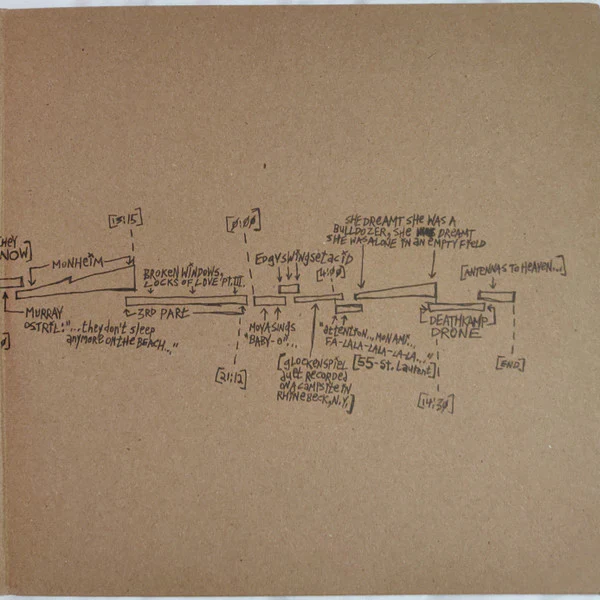 SHE DREAMT SHE WAS A
BULLDOZER, SHE WAS DREAMT
SHE WAS ALONE IN AN EMPTY FIELD
[18:15]
[0:00]
NOW]
MONHEIM
EDGYSWINGSETACID
[4:00]
[ANTENNAS TO HEAVEN...]
BROKEN WINDOWS,
LOCKS OF LOVE PT. III.
MURRAY
OSTRIL: "...they don't sleep
anymore on the BEACH..."
3RD PART
MOYA SINGS
"BABY-O"...
"attention... MON AMI...
FA-LALA-LALA-LA-LA..."
[55-St. Laurent]
DEATHKAMP
DRONE
[gLOCKENSPIEL
duet RECORDED
ON A CAMPSITE IN
RHINEBECK, N.Y.]
[21:12]
[14:30]
[END]